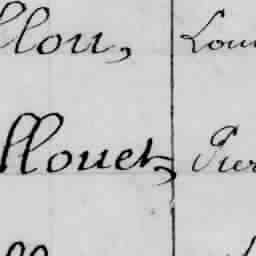 llou, Loui
llouet, Pier